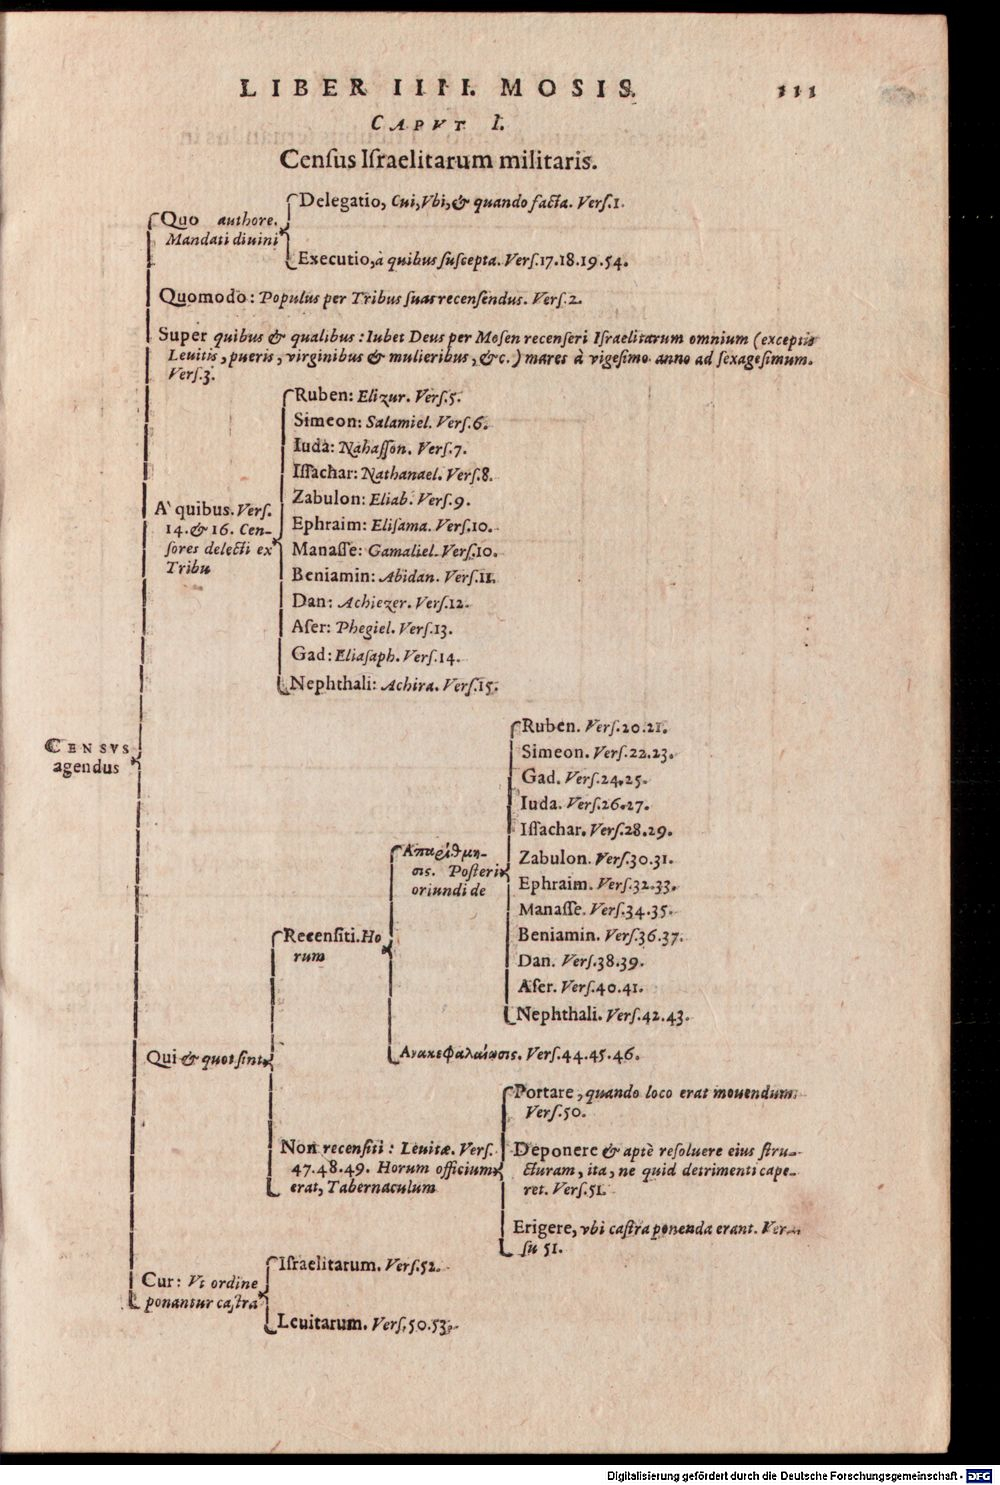 LIBER IIII. MOSIS. 111
CAPVT I.
Cenſus Iſraelitarum militaris.
Delegatio, Cui, Vbi, & quando facta. Verſ.1.
Quo authore.
Mandati diuini
Executio, à quibus ſuſcepta. Verſ.17.18.19.54.
Quomodo: Populus per Tribus ſuas recenſendus. Verſ.2.
Super quibus & qualibus: Iubet Deus per Moſen recenſeri Iſraelitarum omnium (exceptis
Leuitis, pueris, virginibus & mulieribus, &c.) mares à vigeſimo anno ad ſexageſimum.
Verſ.3.
Ruben: Elizur. Verſ.5.
Simeon: Salamiel. Verſ.6.
Iuda: Nahaſſon. Verſ.7.
Iſſachar: Nathanael. Verſ.8.
Zabulon: Eliab. Verſ.9.
A` quibus. Verſ.
14.& 16. Cen-
ſores delecti ex
Tribu
Ephraim: Eliſama. Verſ.10.
Manaſſe: Gamaliel. Verſ.10.
Beniamin: Abidan. Verſ.11.
Dan: Achiezer. Verſ.12.
Aſer: Phegiel. Verſ.13.
Gad: Eliaſaph. Verſ.14.
Nephthali: Achira. Verſ.15.
CENSVS
agendus
Ruben. Verſ.20.21.
Simeon. Verſ.22.23.
Gad. Verſ.24.25.
Iuda. Verſ.26.27.
Iſſachar. Verſ.28.29.
Απαρίθμη-
σις. Poſteri
oriundi de
Zabulon. Verſ.30.31.
Ephraim. Verſ.32.33.
Manaſſe. Verſ.34.35.
Beniamin. Verſ.36.37.
Dan. Verſ.38.39.
Aſer. Verſ.40.41.
Nephthali. Verſ.42.43.
Recenſiti. Ho
rum
Ανακεφαλαίωσις. Verſ.44.45.46.
Qui & quot ſint
Portare, quando loco erat mouendum.
Verſ.50.
Non recenſiti: Leuitæ. Verſ.
47.48.49. Horum officium
erat, Tabernaculum
Deponere & aptè reſoluere eius ſtru-
cturam, ita, ne quid detrimenti cape-
ret. Verſ.51.
Erigere, vbi caſtra ponenda erant. Ver-
ſu 51.
Cur: Vt ordine
ponantur caſtra
Iſraelitarum. Verſ.52.
Leuitarum. Verſ.50.53.
Digitalisierung gefördert durch die Deutsche Forschungsgemeinschaft - DFG